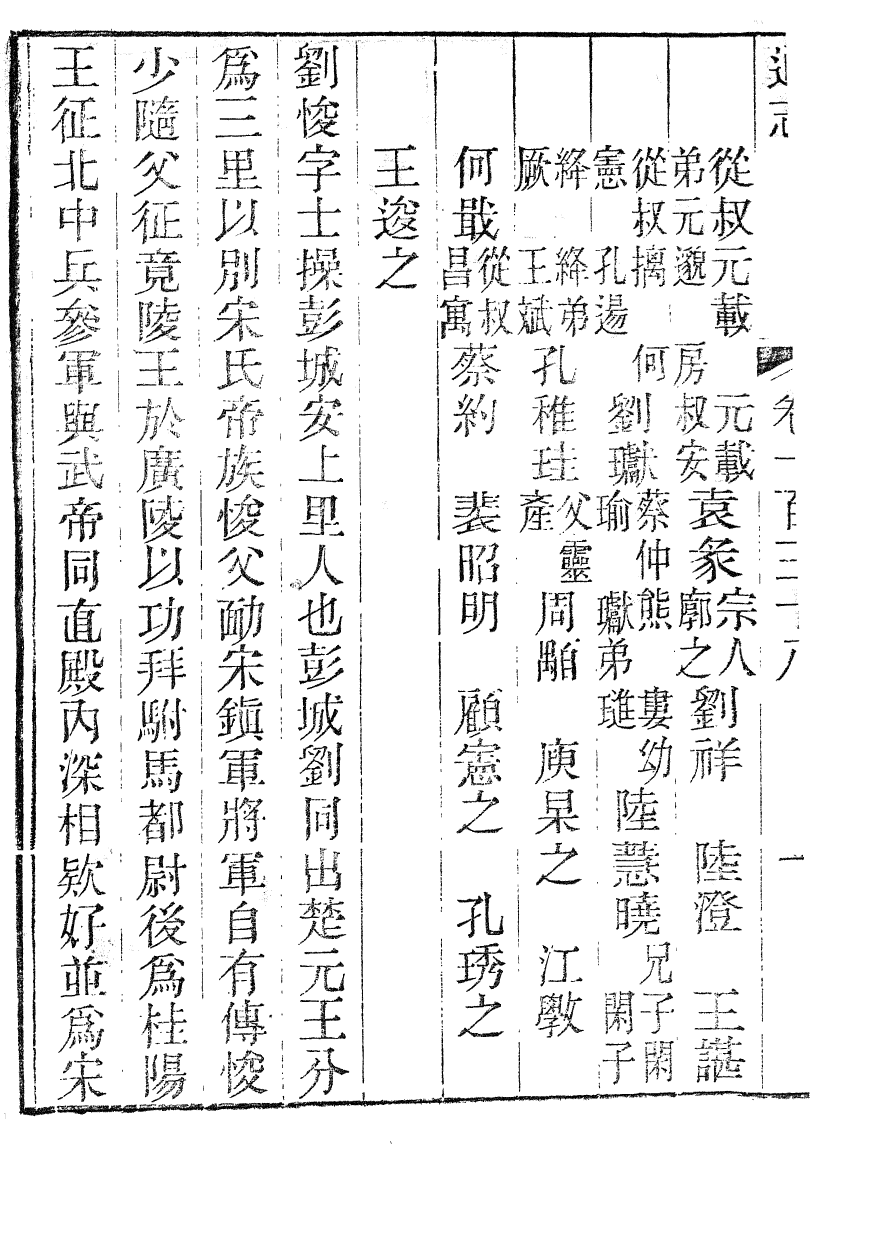 通志 卷一百三十八 一
從叔元載 元載弟元邈 房叔安 袁彖 宗人廓之 劉祥 陸澄 王諶
從叔摛 何憲 孔逷 劉瓛 蔡仲熊 婁幼瑜 瓛弟璡 陸慧曉 兄子閑 閑子
絳 絳弟厥 王斌 孔稚珪 父靈產 周顒 庾杲之 江斅
何戢 從叔昌寓 蔡約 裴昭明 顧憲之 孔琇之
王逡之
劉悛字士操彭城安上里人也彭城劉同出楚元王分
爲三里以別宋氏帝族悛父勔宋鎭軍將軍自有傳悛
少隨父征竟陵王於廣陵以功拜駙馬都尉後爲桂陽
王征北中兵參軍與武帝同直殿內深相欵好並爲宋